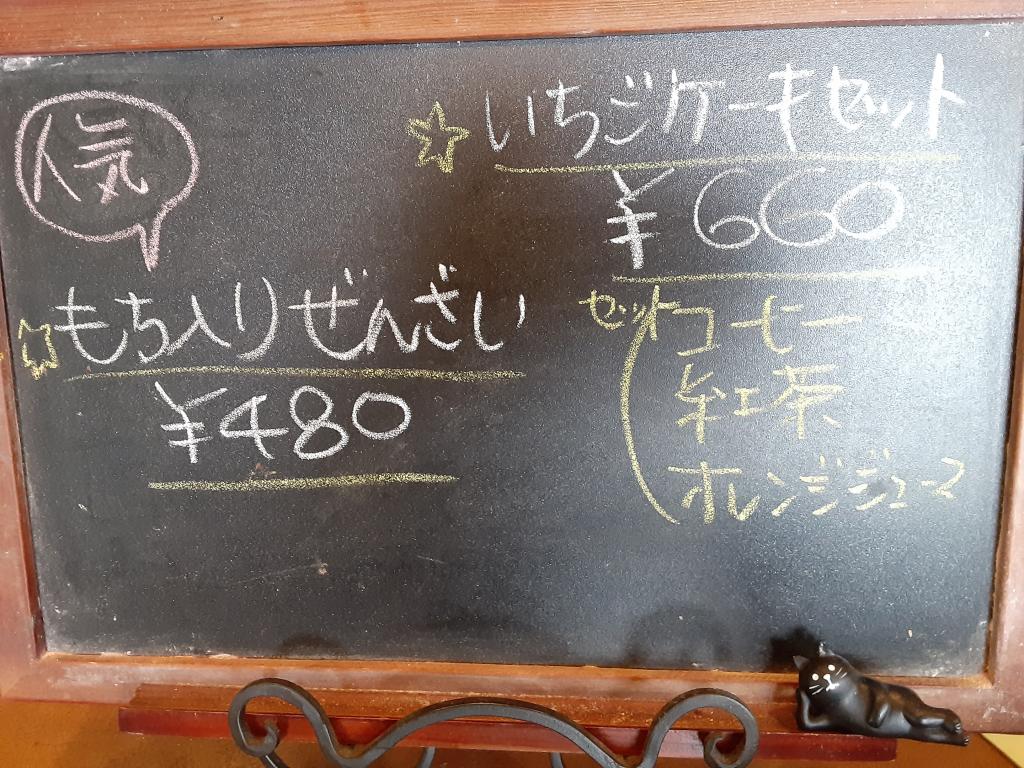 人気
☆いちごケーキセット
¥660
セット
コーヒー
紅茶
オレンジジュース
☆もち入りぜんざい
¥480